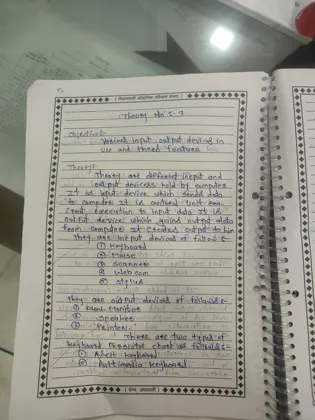 Theory No 5-7
Objective:-
Various input, output devices in
use and their features
Theory:-
Theory are different input and
output devices held by computer
It is input device which sends data
to computer It is central Unit
execution to input data It is
output device which gains output data
from computer It creates output to him
They are input devices of follows:-
① Keyboard
② Mouse
③ Scanner
④ Web com
⑤ Stylus
They are output devices of follows:-
① Monitor
② Speaker
③ Printer
There are two types of
Keyboard as follows:-
① Keyboard
② Multimedia Keyboard